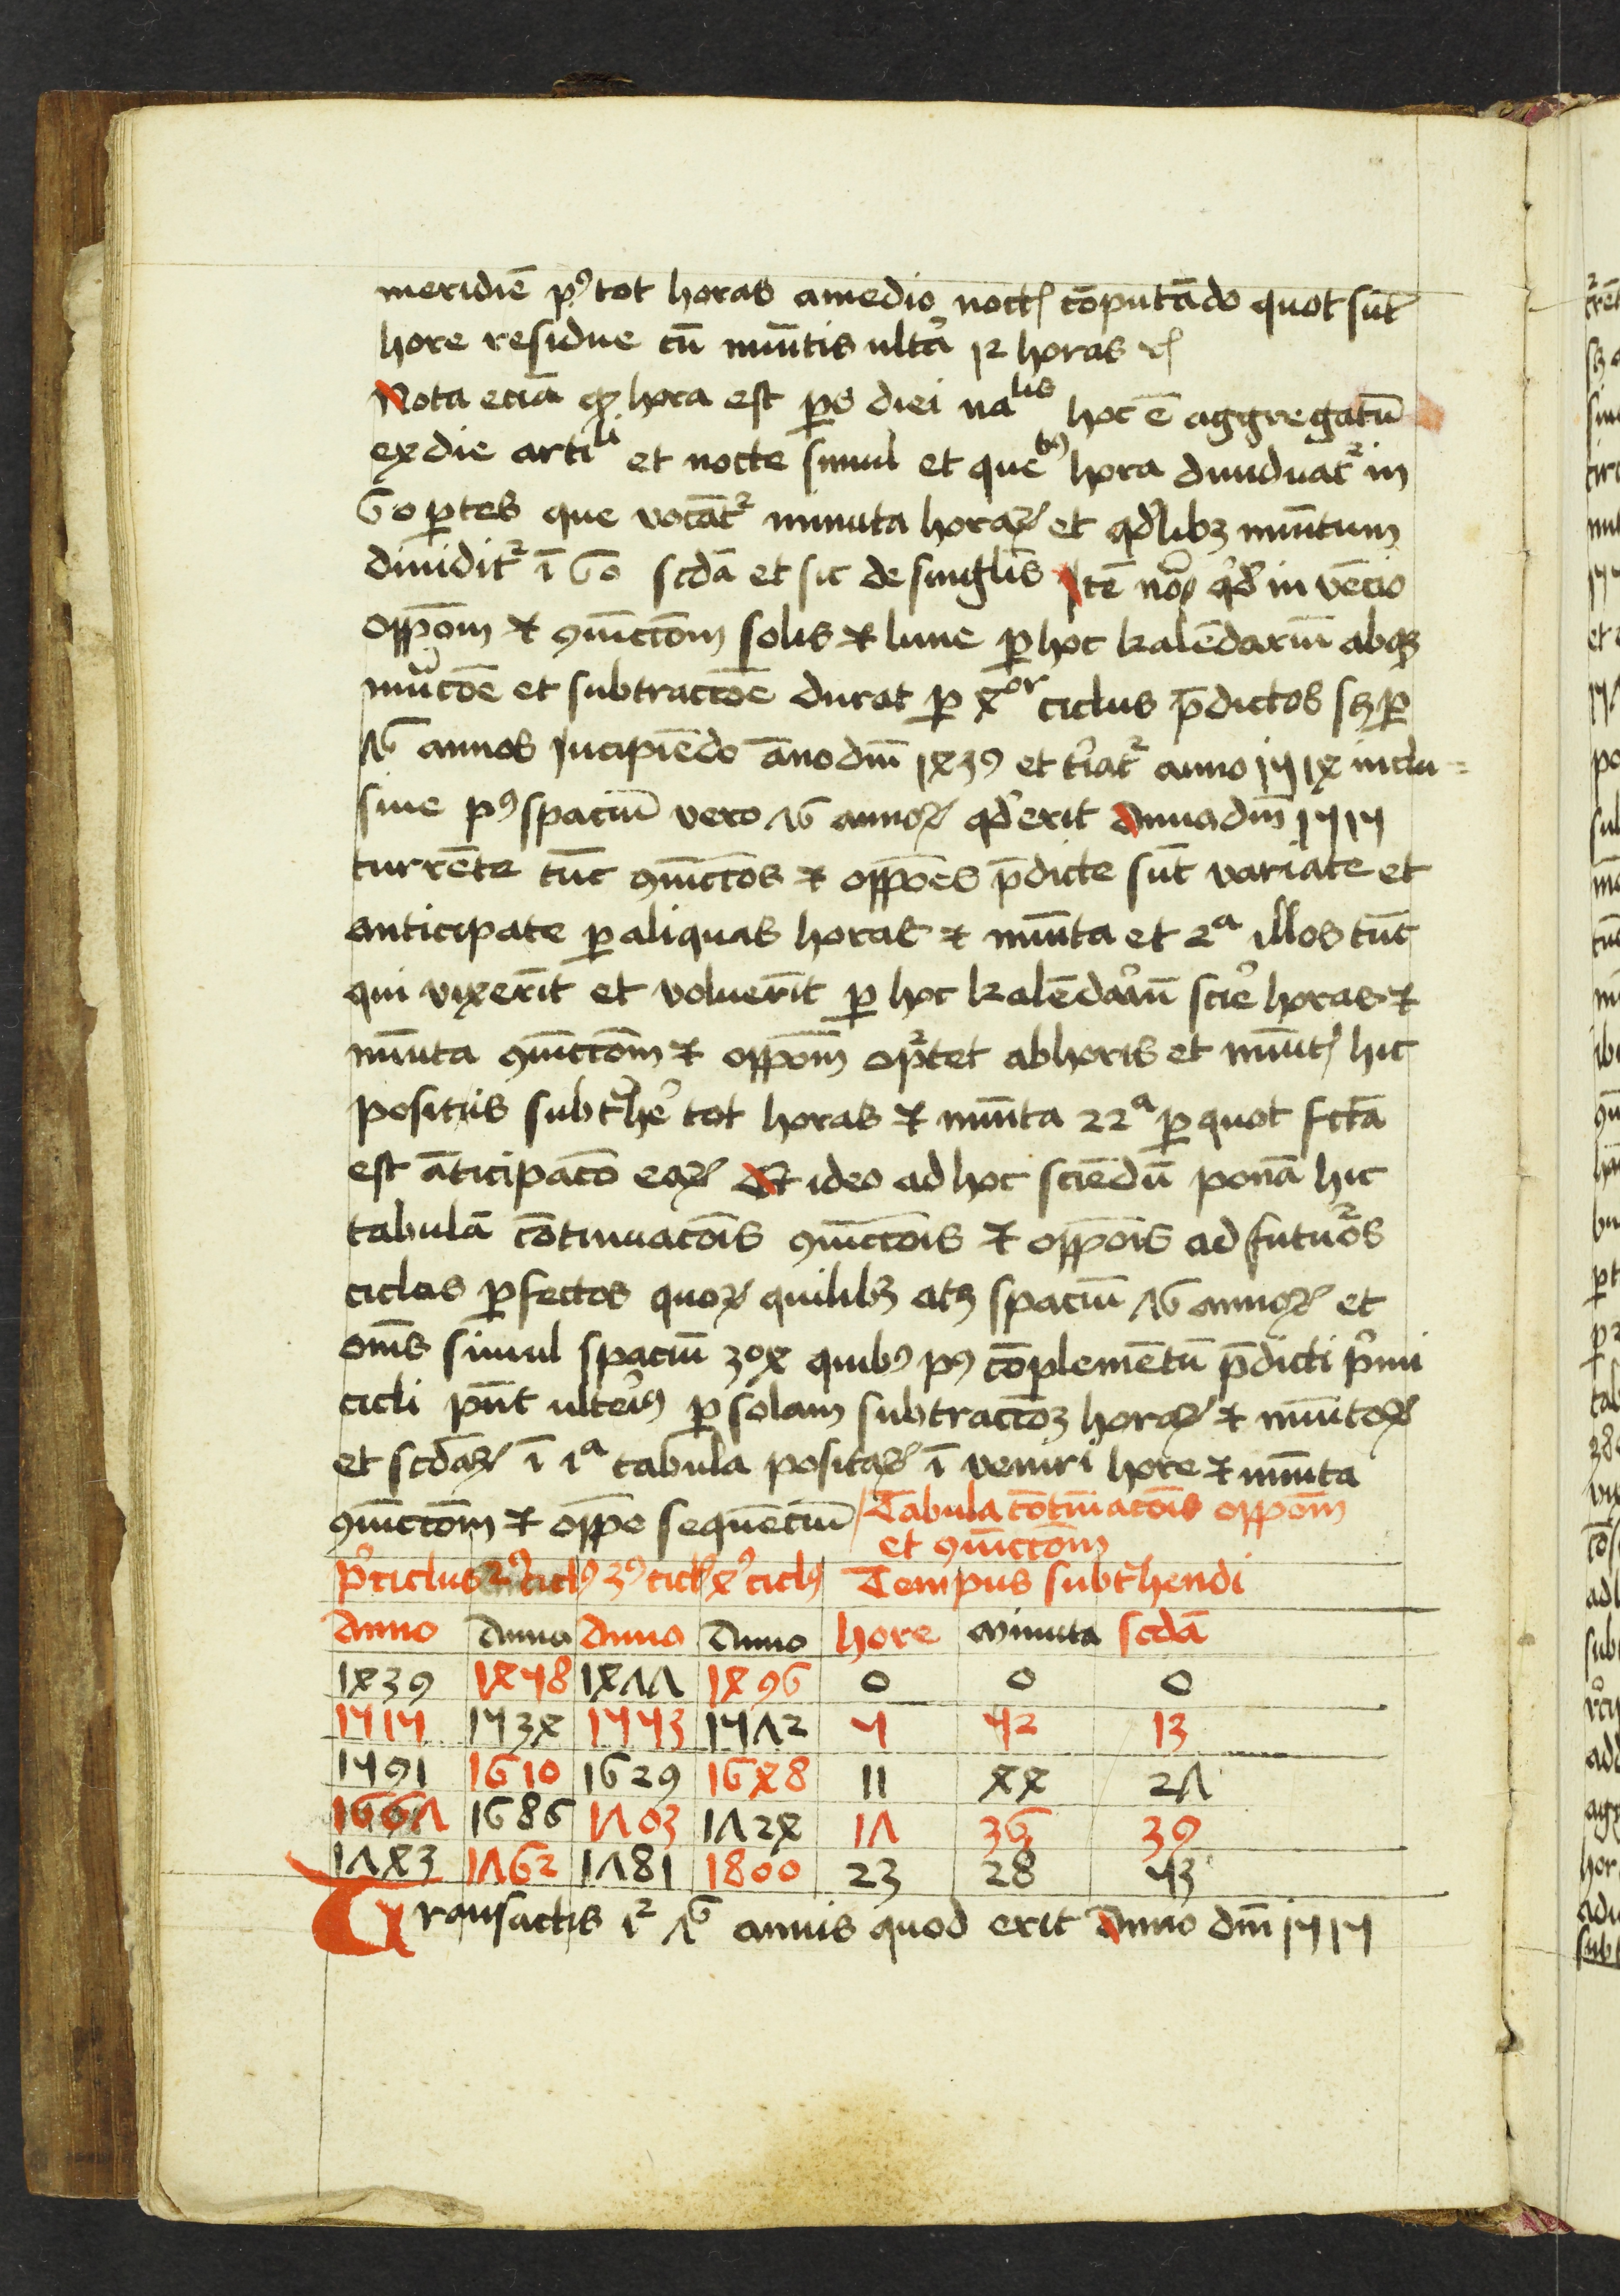 meridiē pꝰ tot horas a medio noctꝭ cōputādo quot sūt
hore residue cū minutis ultra 12 horas ꝛcꝭ
Nota eciā ꝙ hora est ps diei naᵗᵘʳᵃlis hoc ē aggregatū
ex die artiˡⁱ et nocte simul et queˡⁱᵇꝫ hora diuiduatᷣ in
60 ꝑtes que vocātᷣ minuta horaꝝ et qđlibꝫ minutum
diuiditᷣ ī 60 scdā et sic de singulis Itē noᷣ qđ invēcio
oppōm ⁊ ꝯiūctōm solis ⁊ lune ꝑ hoc kalēdariū absqꝫ
minucōe et subtractōe durat ꝑ 4ᵒʳ ciclus p̄dictos sꝫ ꝑ
76 annos Incipiēdo āno dnī 1439 et tīatᷣ anno 1514 inclu=
siue pꝰ spaciū vero 76 annoꝝ qđ erit Anno dnī 1515
currēte tūc ꝯiūctōs ⁊ oppōes p̄dicte sūt variate et
anticipate ꝑ aliquas horas ⁊ minuta et 2ᵃ illos tūc
qui vixerīt et voluerīt ꝑ hoc kalēdariū scire horas ⁊
minuta ꝯiūctōm ⁊ oppōm oportet ab horis et minutꝭ hic
positis subtrahe tot horas ⁊ minuta 22ᵃ ꝑ quot fctā
est āticipacō eaꝝ Et ideo ad hoc sciēdū ponā hic
tabulā cōtinuacōis ꝯiūctōis ⁊ oppōis ad futuros
ciclos ꝑfectos quoꝝ quilibꝫ atꝫ spaciū 76 annoꝝ et
oms simul spaciū 304 quibꝰ pꝰ cōplemētū p̄dicti pͥmi
cicli pn̄t ulteriꝰ ꝑ solam subtractōꝫ horaꝝ ⁊ minutoꝝ
et scdaꝝ ī 1ᵃ tabula positaꝝ ī veniri hore ⁊ minuta
ꝯiūctōm ⁊ oppō sequēciū Tabula cōtinuacōis oppōm
et ꝯiūctōm
pͥꝰ ciclus 2ꝰ ciclꝰ 3ꝰ ciclꝰ 4ꝰ ciclꝰ Tempus subtrahendi
Anno Anno Anno Anno hore Minuta scdā
1439 1458 1477 1496 0 0 0
1515 1534 1553 1572 5 52 13
1591 1610 1629 1648 11 44 27
1667 1686 1703 1724 17 36 39
1743 1762 1781 1800 23 28 53
Transactis 12 76 annis quod erit Anno dnī 1515